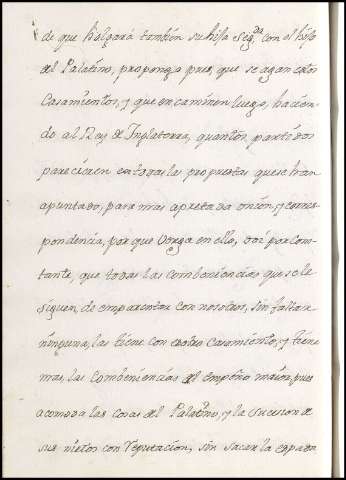 de que halgará también su hija Segda con el hijo
del Palatino, propongo pues, que se agan estos
Casamientos, y que encaminen luego, hacien-
do al Rey de Inglaterra, quantos partidos
parecieren en todas las propuestas que se han
apuntado, para mas apretada union, y corres
pondencia, por que Venga en ello, doi por Cons-
tante, que todas las combeniencias que se le
siguen, de emparentar con nosotros, sin faltar
ninguna, las tiene con estos Casamiento, y tiene
mas, las Combeniencias del empeño maior, pues
acomoda las Cosas del Palatino, y la sucesion de
sus nietos con Reputacion, sin sacar la espada